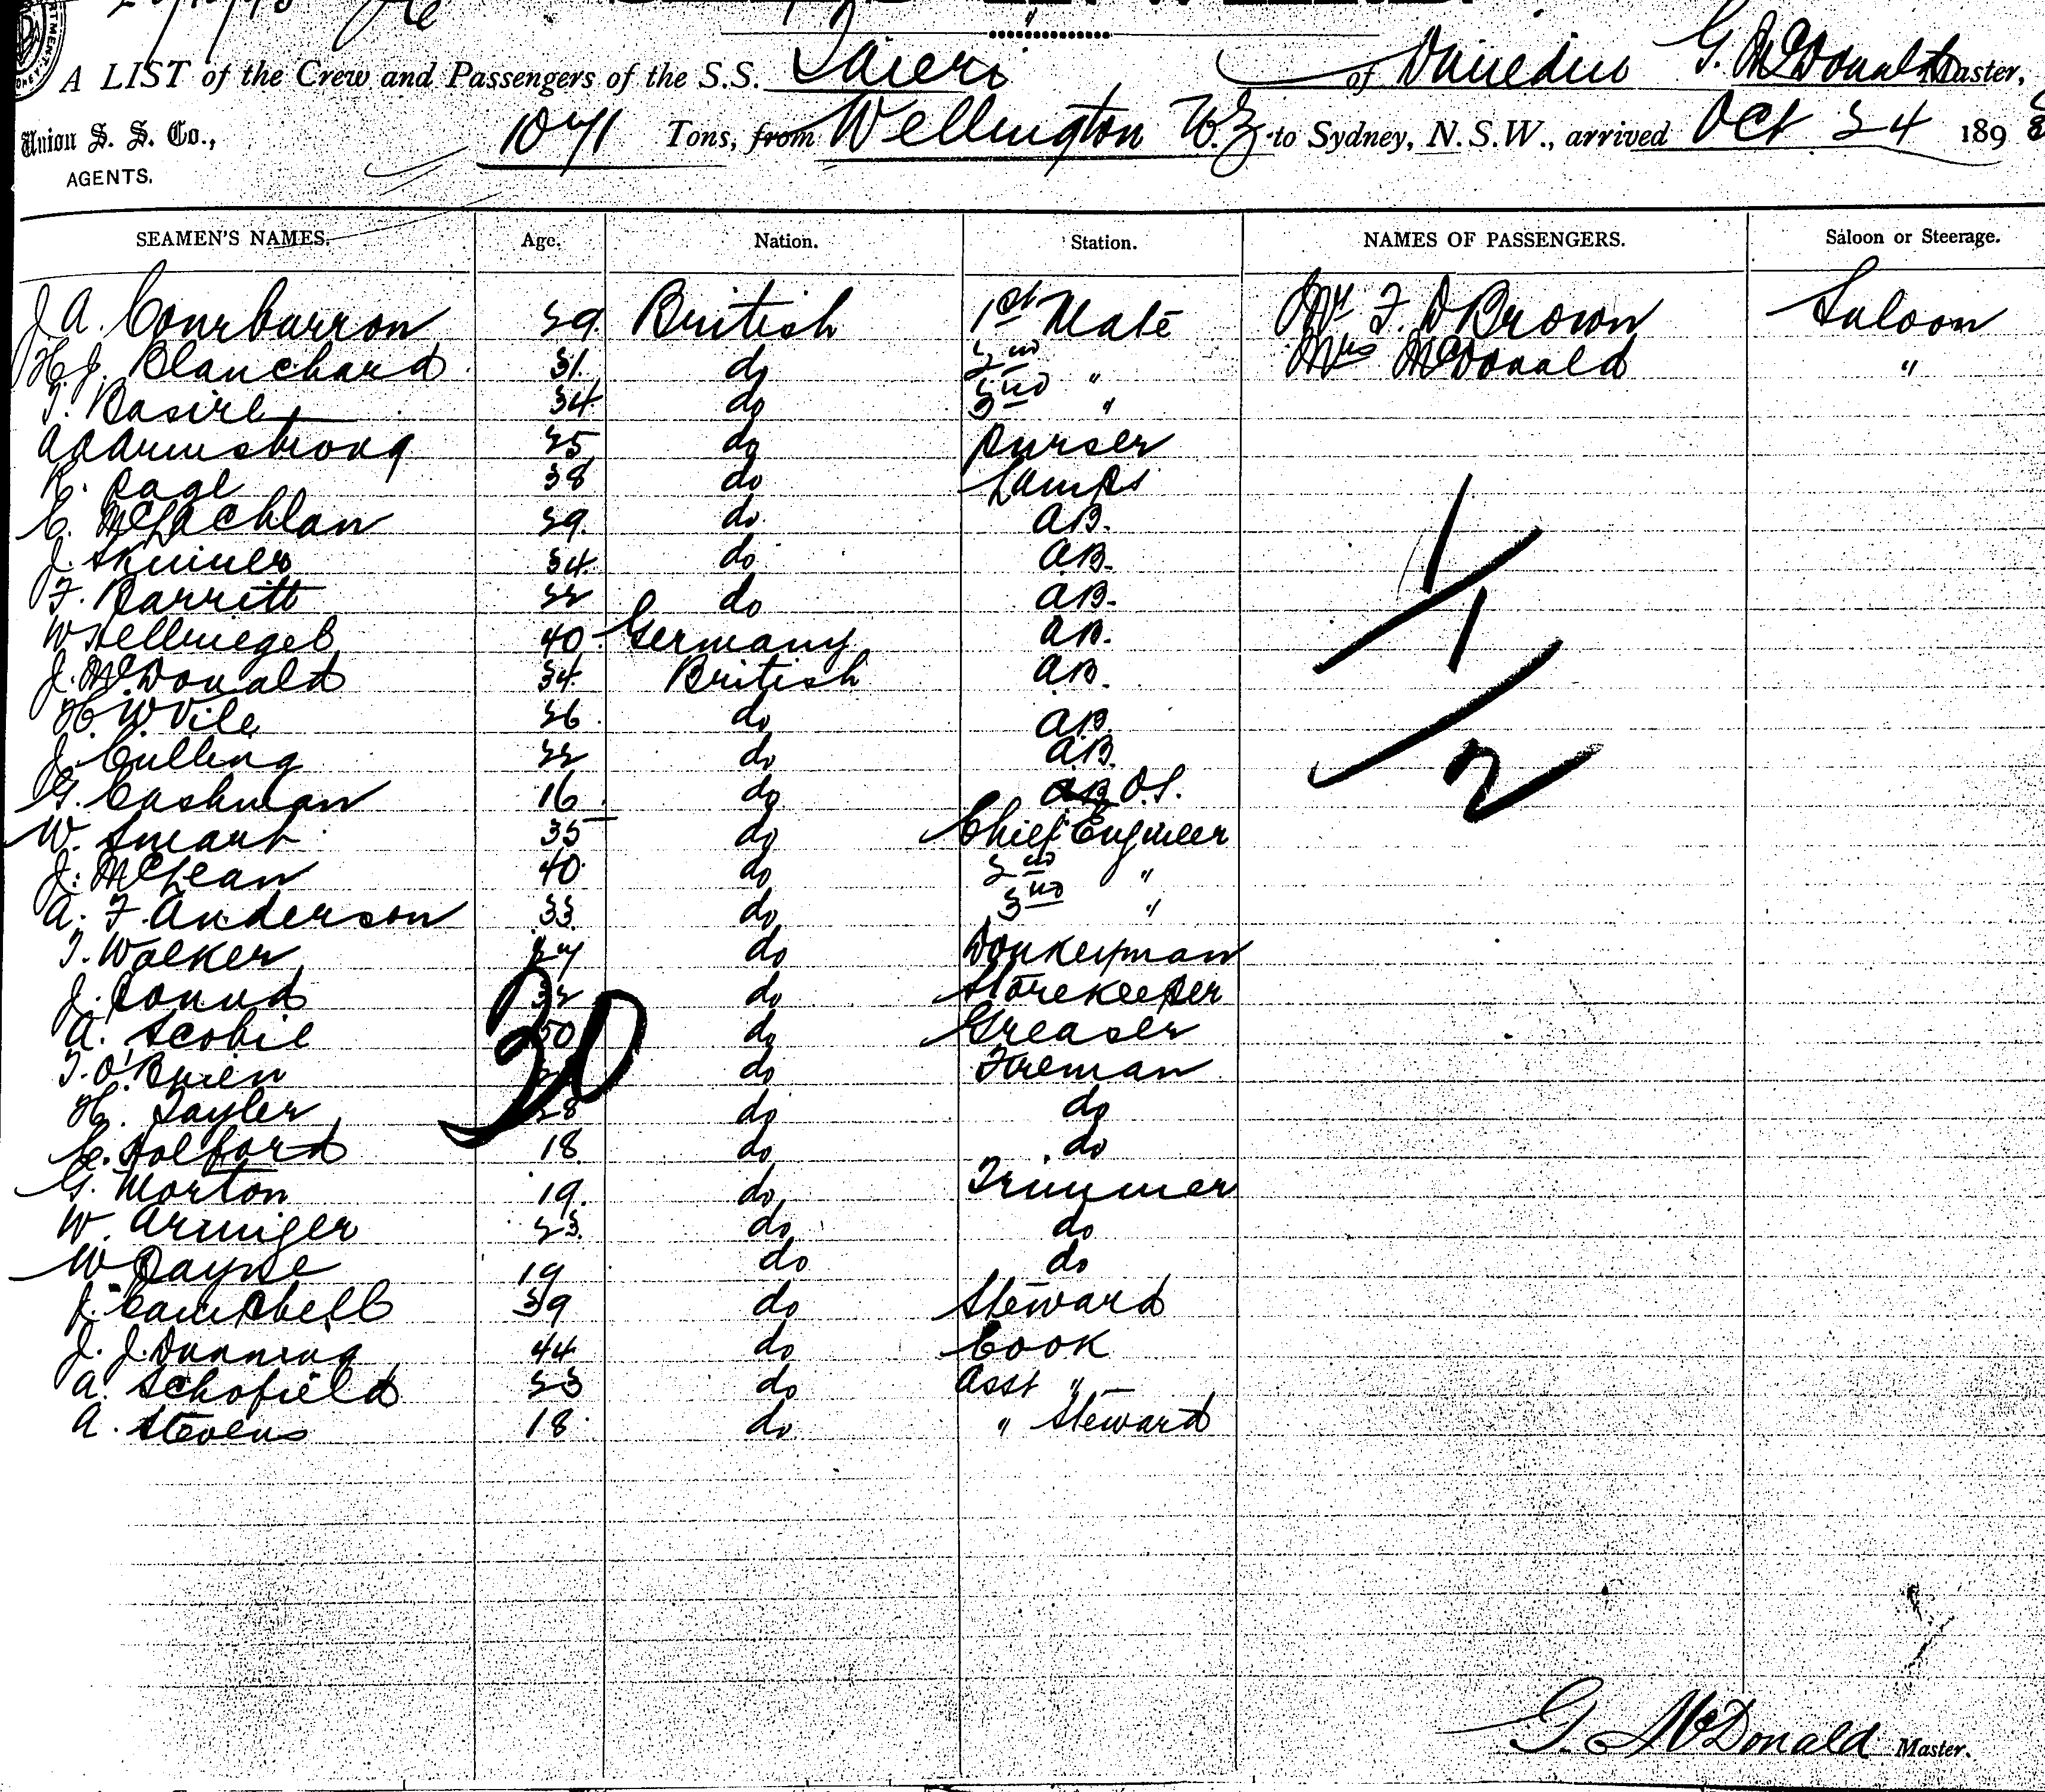 A LIST of the Crew and Passengers of the S.S. Taieri of Dunedin G. McDonald Master,
Union S. S. Co., AGENTS.
1071 Tons, from Wellington N.Z. to Sydney, N.S.W., arrived Oct 24 1898
SEAMEN'S NAMES. Age. Nation. Station. NAMES OF PASSENGERS. Saloon or Steerage.
J A. 29 British 1st Mate Mr F. D Brown Saloon
H J. Blanchard 31 do 2nd " Mrs McDonald "
T. Basire 34 do 3rd "
A Armstrong 25 do Purser
R. Page 38 do Lamps
C. McLachlan 29 do A.B.
J. Skinner 34 do A.B.
F. Parritt 22 do A.B.
W Hellriegel 40 Germany A.B.
J. McDonald 34 British A.B.
H. W Vile 26 do A.B.
J. Culling 22 do A.B.
G. Cashman 16 do O.S.
W. Smart 35 do Chief Engineer
J. McLean 40 do 2nd "
A. F. Anderson 33 do 3rd "
T. Walker do Donkeyman
J. 32 do Storekeeper
A. Scobie 50 do Greaser
T. O'Brien do Fireman
H. Tayler 28 do do
C. Holford 18 do do
G. Morton 19 do Trimmer
W. Armiger 23 do do
W Payne 19 do do
J. Campbell 39 do Steward
J. J. Dunning 44 do Cook
A. Schofield 23 do Asst "
A. Stevens 18 do " Steward
1
1
2
30
G. McDonald Master.